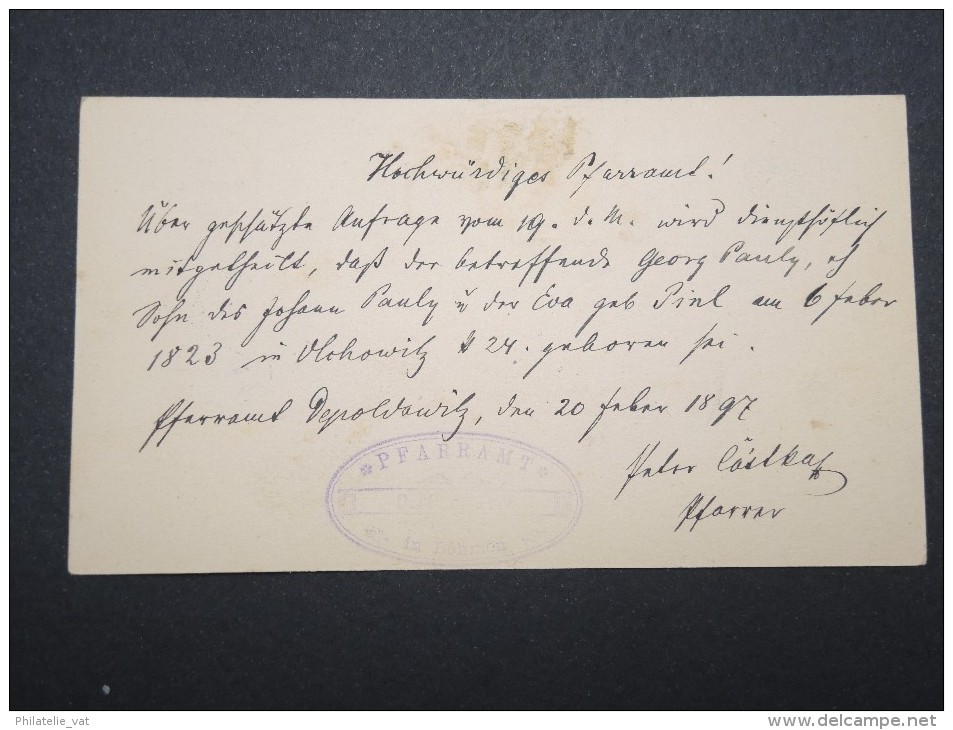 Hochwürdiges Pfarramt!
Über geschätzte Anfrage vom 19. d. M. wird diensthöflich
mitgetheilt, daß der betreffende Georg Pauly, eh
Sohn des Johann Pauly u der Eva geb am 6 Feber
1823 in 24. geboren sei.
Pfarramt Depoldowitz, den 20 Feber 1897
Peter
Pfarrer
* PFARRAMT *
in Böhmen
Philatelie_vat
www.delcampe.net